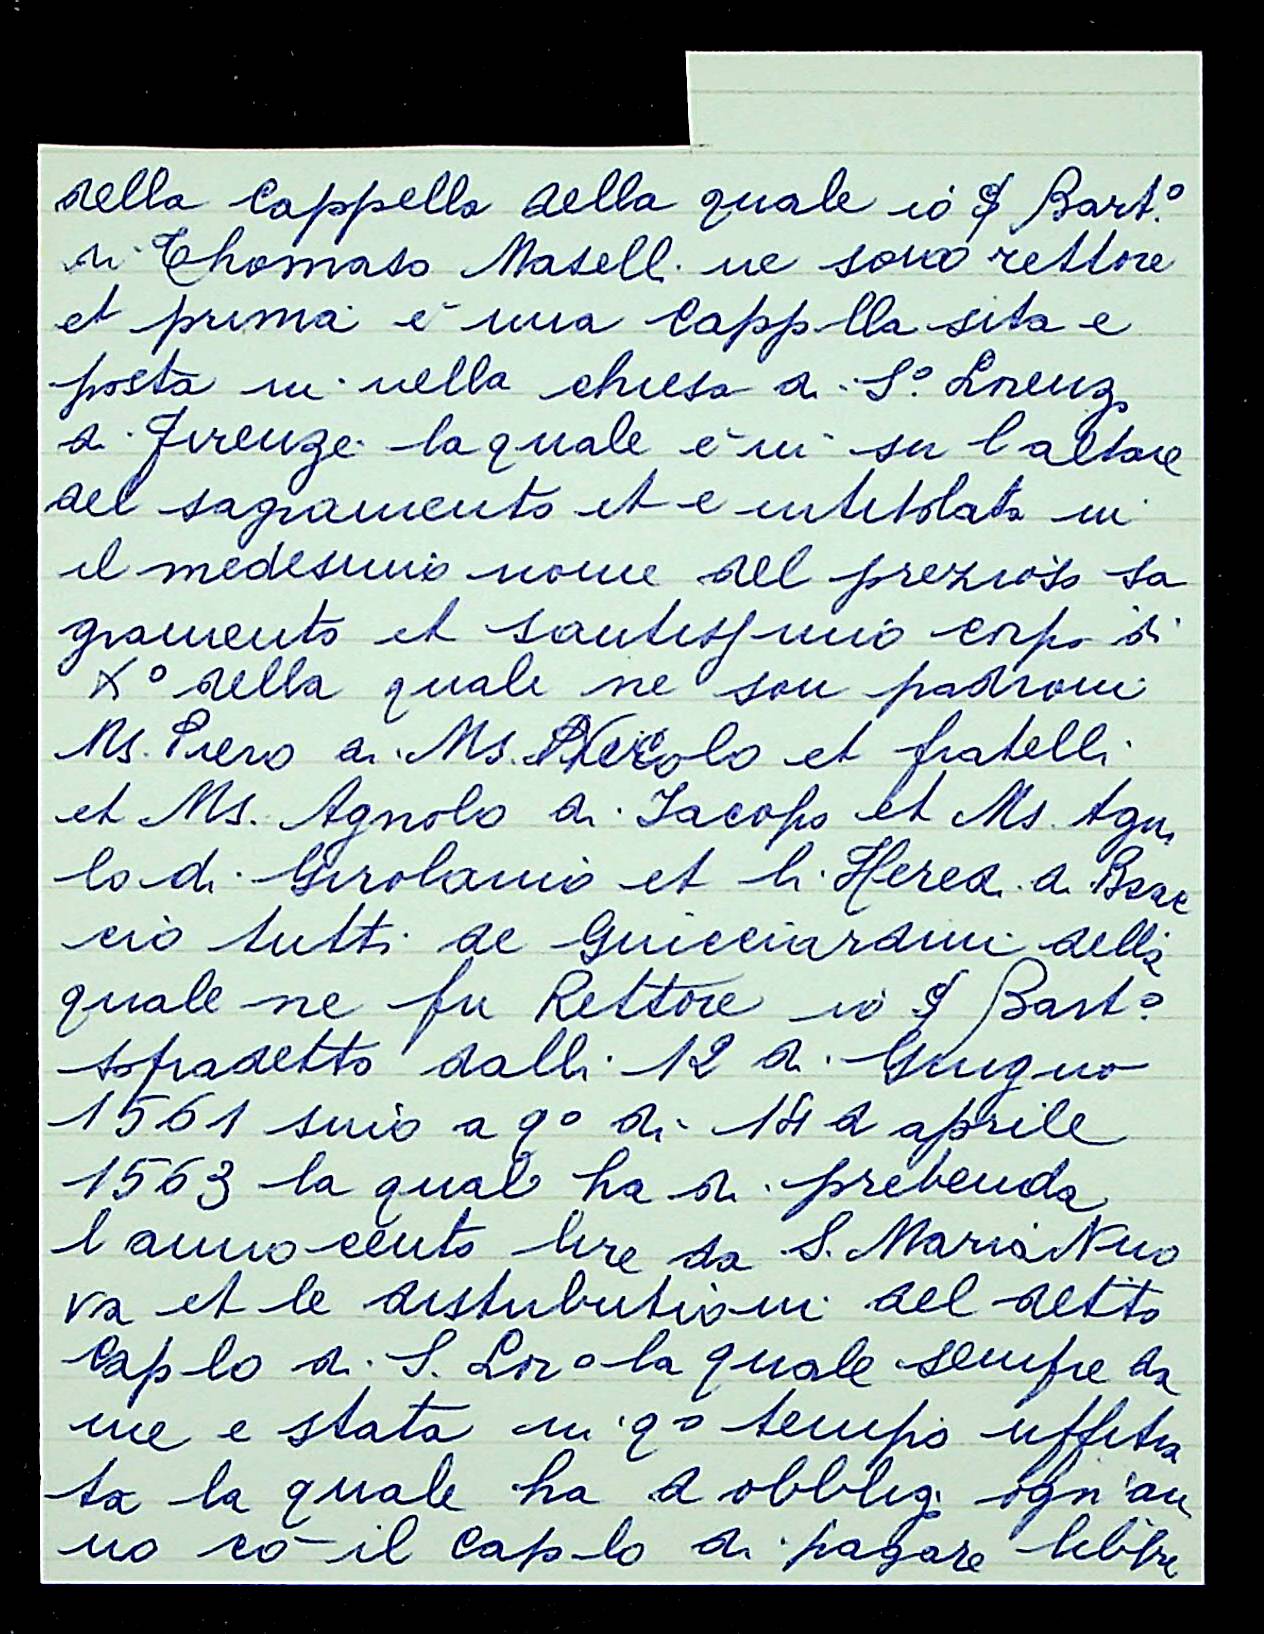 della Cappella della quale io S Bart.º
di Thomaso Masell. ne sono rettore
et prima è una Capp-lla sita e
posta in nella chiesa di Sº. Lorenzo
di Firenze la quale è in su l altare
del sagramento et e intitolata in
il medesimo nome del prezioso sa
gramento et santissimo corpo di
Xº della quale ne son padroni
Ms. Piero di Ms. Niccolo et fratelli
et Ms. Agnolo di Iacopo et Ms. Agno
lo di Girolamo et li Heredi di Bac
cio tutti de Guicciardini della
quale ne fu Rettore io S Bartº
sopradetto dalli 12 di Giugno
1561 sino a qº di 14 d aprile
1563 la qual ha di prebenda
l anno cento lire da S. Maria Nuo
va et le distributioni del detto
Cap-lo di S. Lorº la quale sempre da
me e stata in qº tempo uffitia
ta la quale ha d obbligo ogn'an
no cō il Cap-lo di pagare libbre